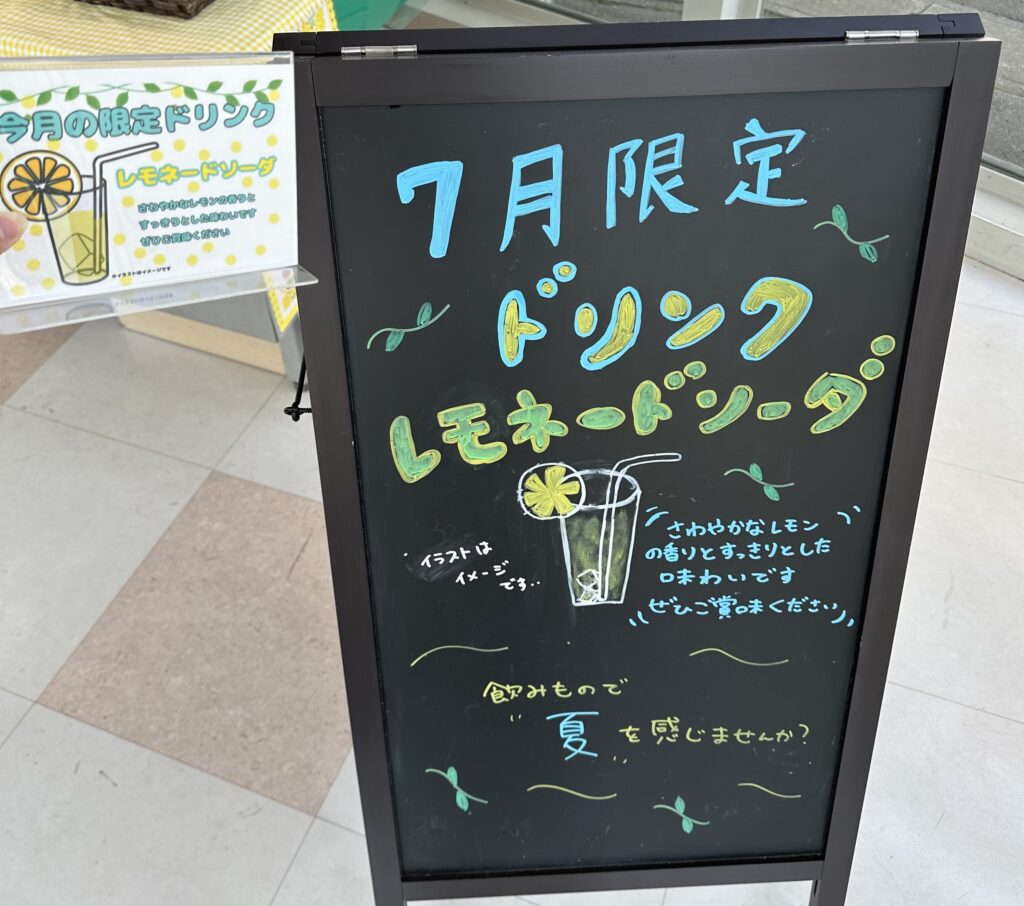 今月の限定ドリンク
レモネードソーダ
さわやかなレモンの香りと
すっきりとした味わいです
ぜひご賞味ください
※イラストはイメージです
7月限定
ドリンク
レモネードソーダ
イラストは
イメージ
です..
さわやかなレモン
の香りとすっきりとした
味わいです
ぜひご賞味ください
飲みもので
"夏"を感じませんか?